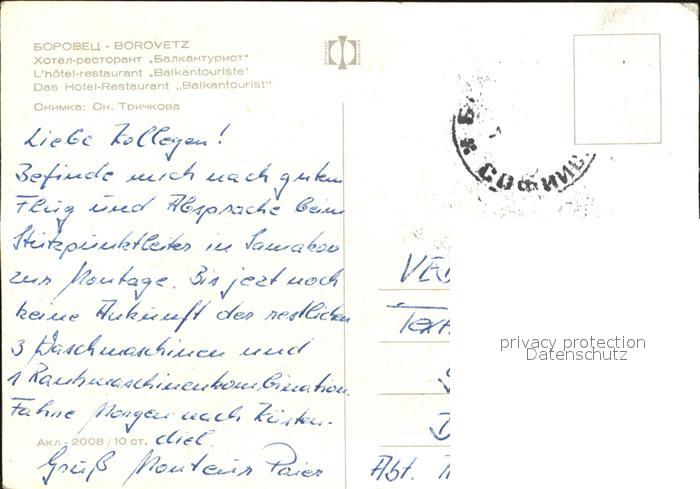 БОРОВЕЦ - BOROVETZ
Хотел-ресторант „Балкантурист"
L'hôtel-restaurant „Balkantouriste"
Das Hotel-Restaurant „Balkantourist"
Снимка: Сн. Тричкова
Liebe Kollegen!
Befinde mich nach gutem
Flug und Absprache beim
Stützpunktleiter in Samakov
zur Montage. Bis jezt noch
keine Ankunft der restlichen
3 Waschmaschinen und
1 Rauhmaschinenkombination.
Fahre Morgen nach Küsten-
dil.
Акл - 2008 / 10 ст.
Gruß Monteur Paier
СОФИЙС
VE
Text
D
Abt.
privacy protection
Datenschutz